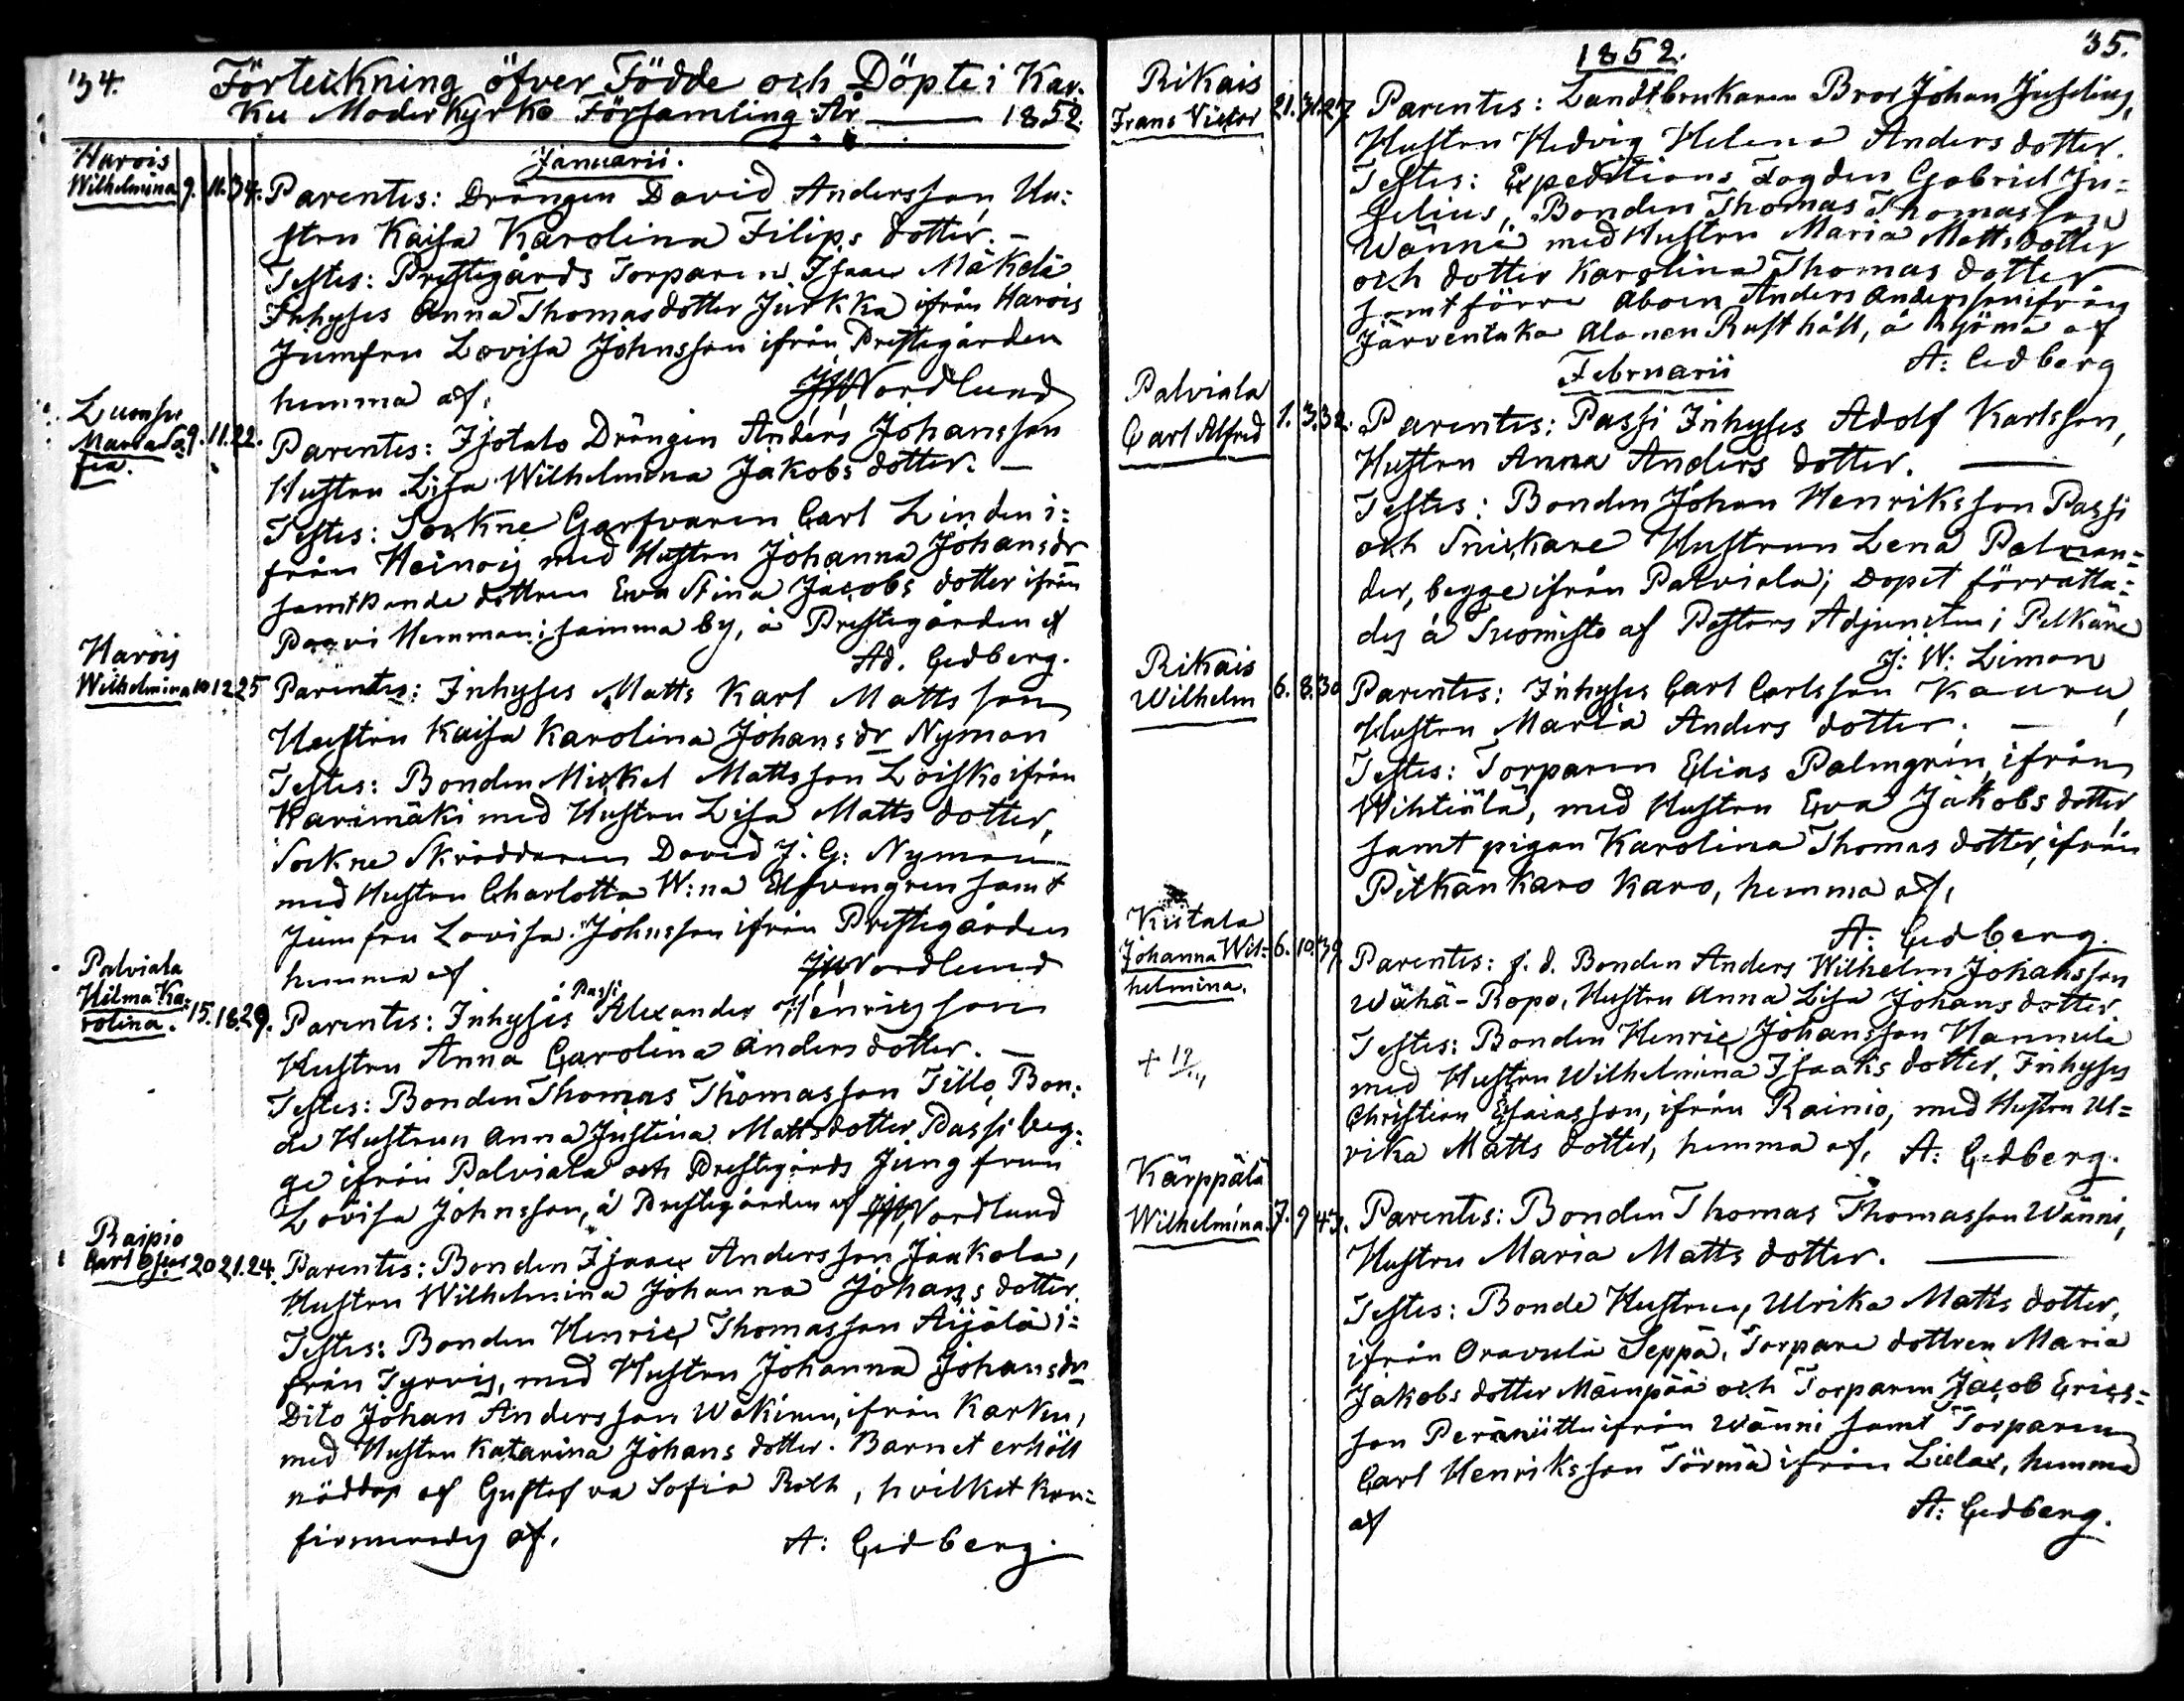 34.
Förteckning öfver Födde och Döpte i Kar-
ku Moderkyrko Församling År — 1852.
Januarii.
Harois
Wilhelmina 9. 11. 34.
Parentes: Drängen David Andersson, Hu-
stru Kaisa Karolina Filips dotter. —
Testes: Prestegårds Torparen Isaac Mäkelä
Inhyses Anna Thomasdotter Jurkka ifrån Harois
Jumfru Lovisa Johnsson ifrån Prestegården
hemma af, JWNordlund
Luensu
Maria So- 9. 11. 22.
fia.
Parentes: Isotalo Drängen Anders Johansson
Hustru Lisa Wilhelmina Jakobs dotter. —
Testes: Sockne Garfvaren Carl Linden i-
från Heinois med Hustru Johanna Johansdr
samt Bonde dottren Eva Stina Jacobs dotter ifrån
Paavi Hemman i samma by, å Prestegården af
Ad. Gedberg.
Harois
Wilhelmina 10 12 25
Parentes: Inhyses Matts Karl Mattsson
Hustru Kaisa Karolina Johansdr Nyman
Testes: Bonden Mickel Mattsson Loisko ifrån
Karimäki med Hustru Lisa Matts dotter,
Sockne Skräddaren David J. G: Nyman
med Hustru Charlotta W:na Elfvengren samt
Jumfru Lovisa Johnsson ifrån Prestegården
hemma af JWNordlund
Palviala
Hilma Ka-
rolina. 15. 18. 29.
Passi
Parentes: Inhyses Alexander Henricsson
Hustru Anna Carolina Andersdotter. —
Testes: Bonden Thomas Thomasson Tillo, Bon-
de Hustrun Anna Justina Mattsdotter Passi beg-
ge ifrån Palviala och Prestegårds Jungfrun
Lovisa Johnsson, å Prestegården af JWNordlund
Raipio
Carl 20 21. 24.
Parentes: Bonden Isaac Andersson Jaakola,
Hustru Wilhelmina Johanna Johans dotter.
Testes: Bonden Henric Thomasson Äijälä i-
från Tyrvis, med Hustru Johanna Johansdr
Dito Johan Andersson Wäkinen, ifrån Karku,
med Hustru Katarina Johans dotter. Barnet erhöll
nöddop af Gustafva Sofia Roth, hvilket kon-
firmerades af, A: Gedberg.
1852. 35.
Rikais
Frans Victor 21. 31. 27.
Parentes: Landtbrukaren Bror Johan Juselius,
Hustru Hedvig Helena Anders dotter.
Testes: Expeditions Fogden Gabriel Ju-
selius, Bonden Thomas Thomasson
Wänni med Hustru Maria Mattsdotter
och dotter Karolina Thomas dotter
samt förre åboen Anders Andersson ifrån
Järventaka Alanen Rusthåll, å af
A: Gedberg
Februarii
Palviala
Carl Alfred 1. 3. 32.
Parentes: Passi Inhyses Adolf Karlsson,
Hustru Anna Anders dotter. —
Testes: Bonden Johan Henriksson Passi
och Snickare Hustrun Lena Palman-
der, begge ifrån Palviala; Dopet förrätta-
des å Suonisto af Pastors Adjuncten i Pelkäne
J: W: Limon
Rikais
Wilhelm 6. 8. 30
Parentes: Inhyses Carl Carlsson Kaura,
Hustru Maria Anders dotter. —
Testes: Torparen Elias Palmgren, ifrån
Wihtiälä, med Hustru Eva Jakobs dotter,
samt pigan Karolina Thomas dotter, ifrån
Pitkänkaro Karo, hemma af,
A: Gedberg.
Kiitala
Johanna Wil- 6. 10. 39.
helmina.
Parentes: f. d. Bonden Anders Wilhelm Johansson
Wähä-Ropo, Hustru Anna Lisa Johans dotter
Testes: Bonden Henric Johansson Hannula
med Hustru Wilhelmina Isaaks dotter, Inhyses
Christian Esaiasson, ifrån Rainio, med Hustru Ul-
rika Matts dotter, hemma af, A: Gedberg.
Kärppälä
Wilhelmina 7. 9 43.
Parentes: Bonden Thomas Thomasson Wänni,
Hustru Maria Matts dotter. —
Testes: Bonde Hustrun, Ulrika Matts dotter,
ifrån Oravula Seppä, Torpare dottren Maria
Jakobs dotter Mäenpää och Torparen Jacob Erics-
son Peräniittu ifrån Wänni samt Torparen
Carl Henriksson Törmä ifrån Lielax, hemma
af A: Gedberg.